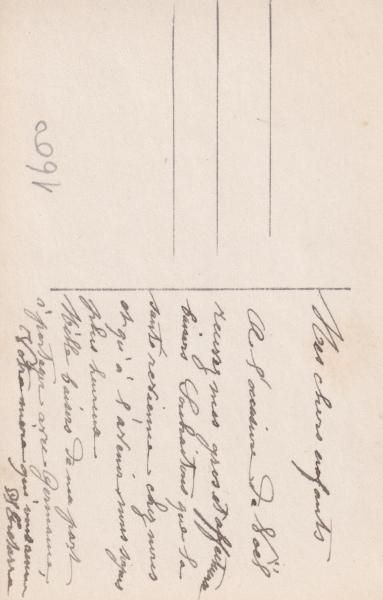 Mes chers enfants
A l'occasion de Noël
recevez mes gros et affectueux
baisers Souhaitons que la
santé revienne chez nous
et qu'à l'avenir nous soyons
plus heureux
Mille baisers de ma part
à partager avec Germaine,
Votre mère qui vous aime
1690